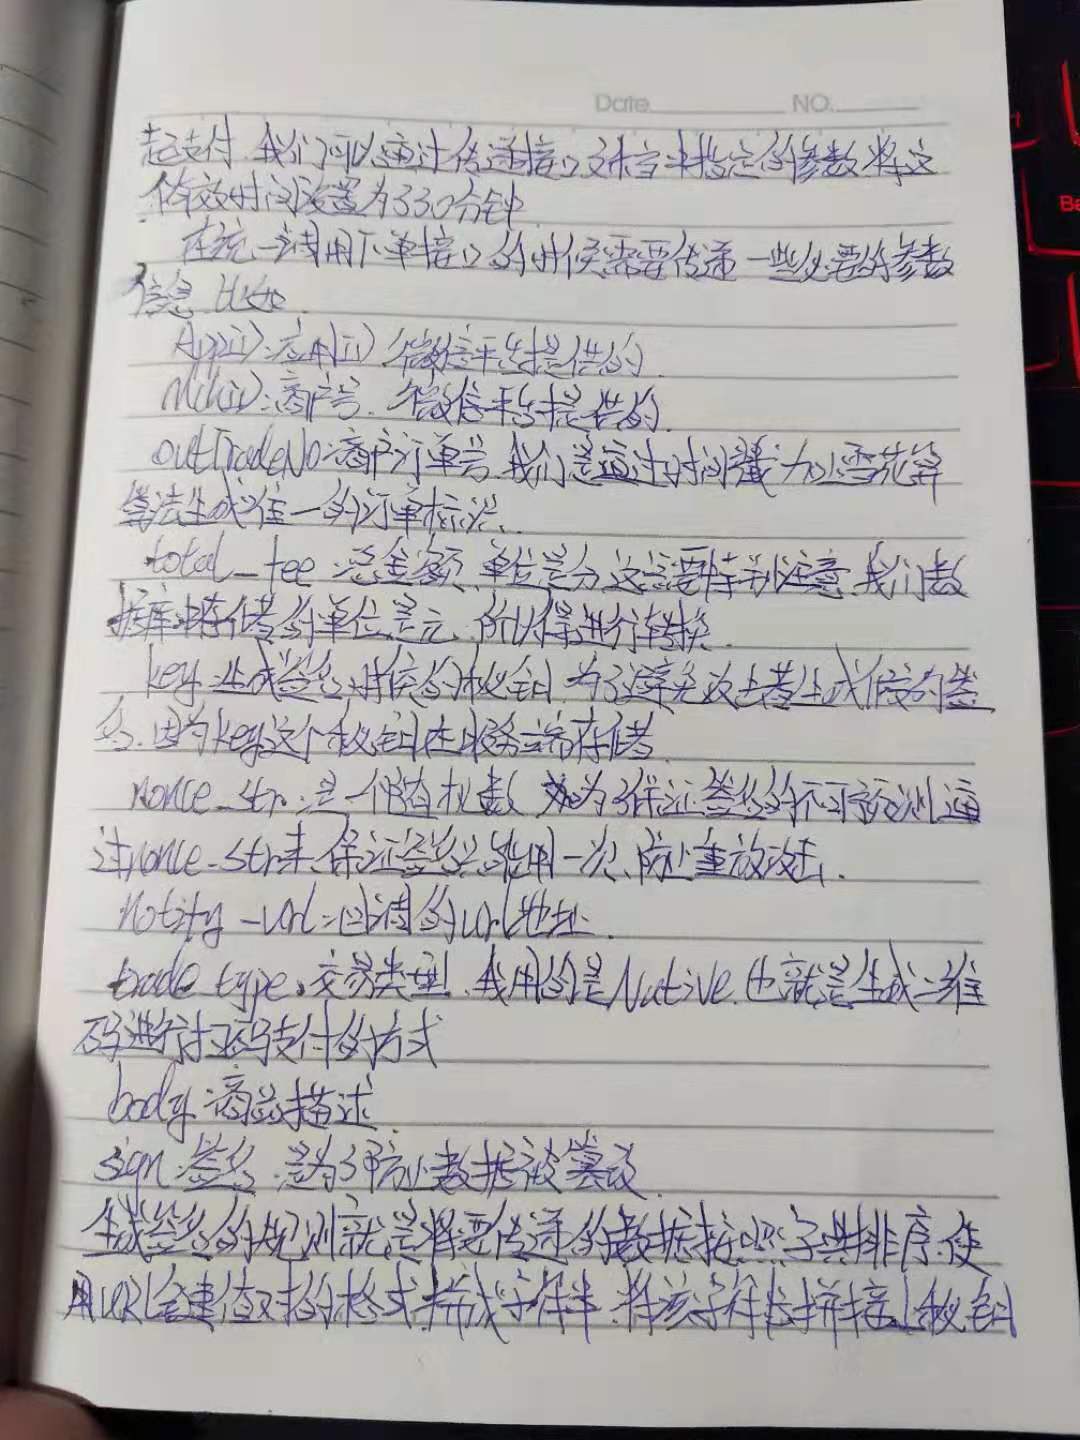 Date NO.
起支付.我们可以通过传递接口文档当中指定的参数将这
个有效时间设置为330分钟
在统一调用下单接口的时候需要传递一些必要的参数
信息.比如.
AppiD:应用iD 微信平台提供的.
MchiD:商户号. 微信平台提供的.
outTradeNo:商户订单号.我们是通过时间戳加上雪花算
算法生成唯一的订单标识.
total_fee:总金额,单位是分,这点要特别注意.我们数
据库中存储的单位是元.所以得进行转换.
key:生成签名时候的秘钥.为了避免攻击者生成假的签
名.因为key这个秘钥在服务端存储.
nonce_str:是一个随机数 为了保证签名的不可预测.通
过nonce_str来保证签名只能用一次.防止重放攻击.
notify-url:回调的url地址.
trade type:交易类型.我用的是Native.也就是生成二维
码进行扫码支付的方式
body:商品描述.
sign:签名.是为了防止数据被篡改.
生成签名的规则就是将要传递的数据按照字典排序.使
用URL键值对的格式拼成字符串.将该字符串拼接上秘钥